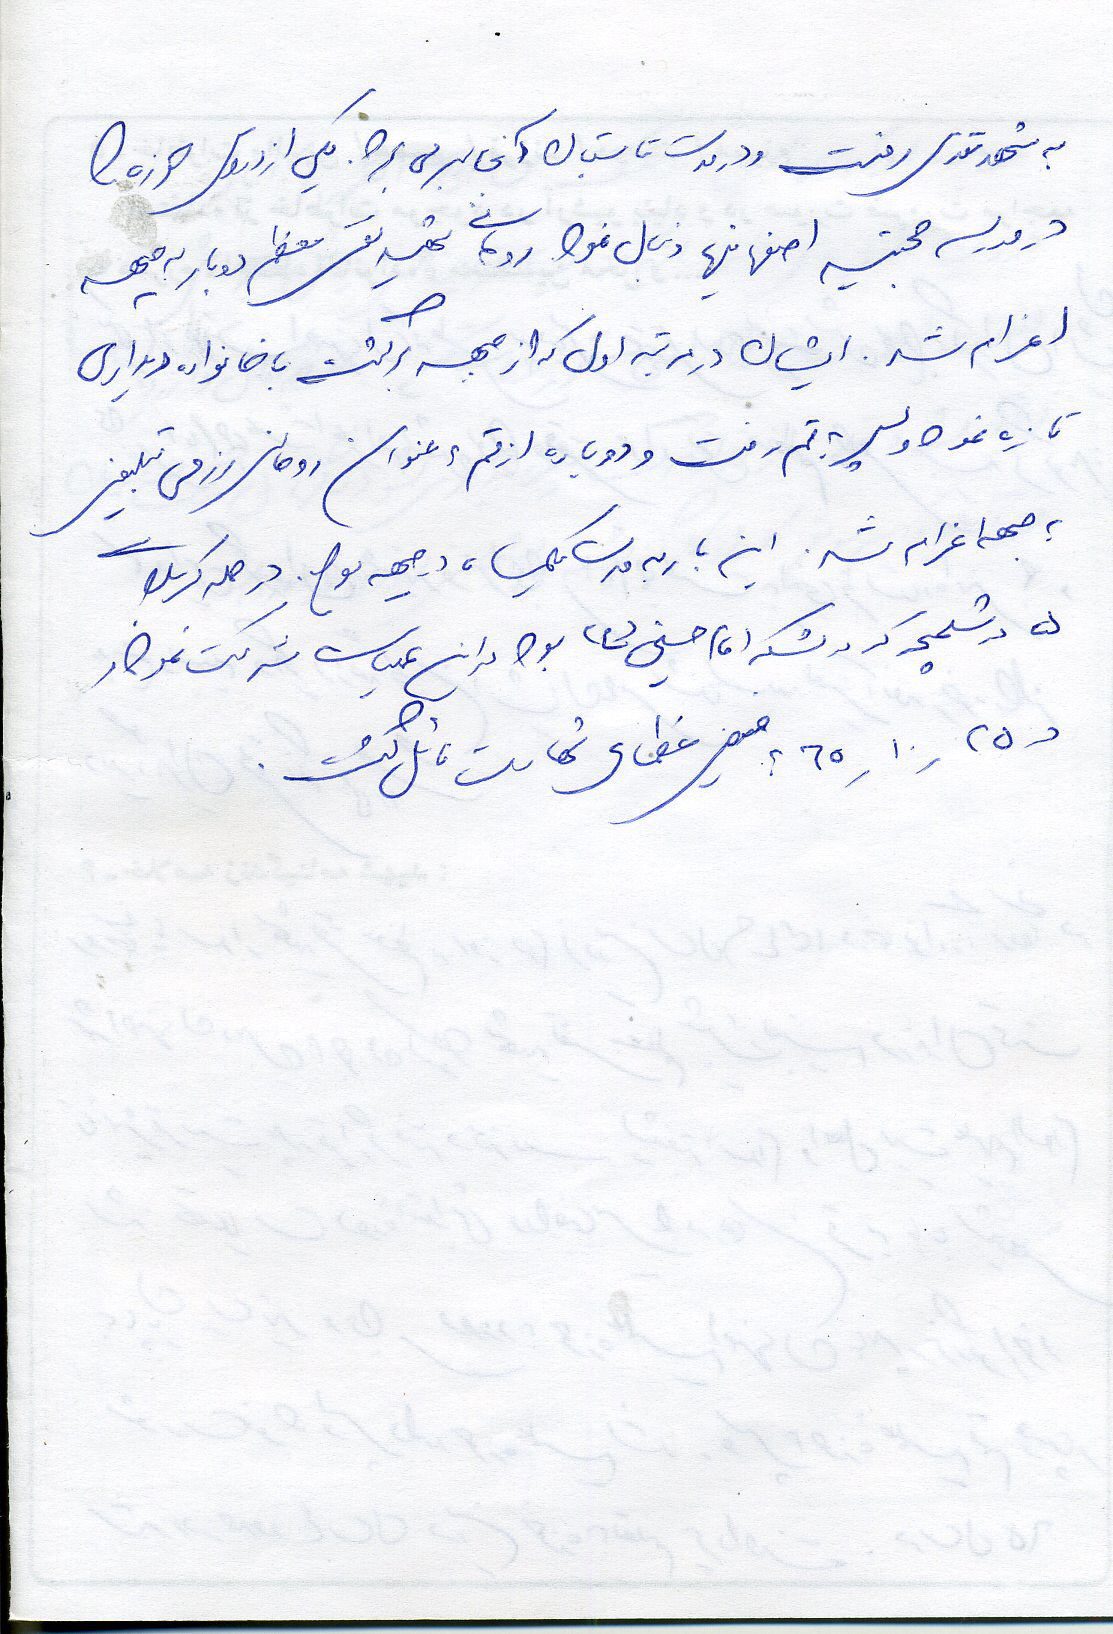 به مشهد مقدس رفت و در مدت تابستان آنجا بسر می برد. یکی از دروس حوزه را
در مدرسه حجتیه اصفهانیها دنبال نمود روحانی شهید تقی معظم دوبار به جبهه
اعزام شد. ایشان در مرتبه اول که از جبهه برگشت با خانواده دیداری
تازه نمود و سپس به قم رفت و دوباره از قم به عنوان روحانی رزمی تبلیغی
به جبهه اعزام شد. این بار به مدت یکماه در جبهه بود. در حمله کربلای
۵ در شلمچه که در لشکر امام حسین (ع) بود در این عملیات شرکت نمود و
در ۲۵ ر ۱۰ ر ۶۵ به فیض عظمای شهادت نائل گشت.